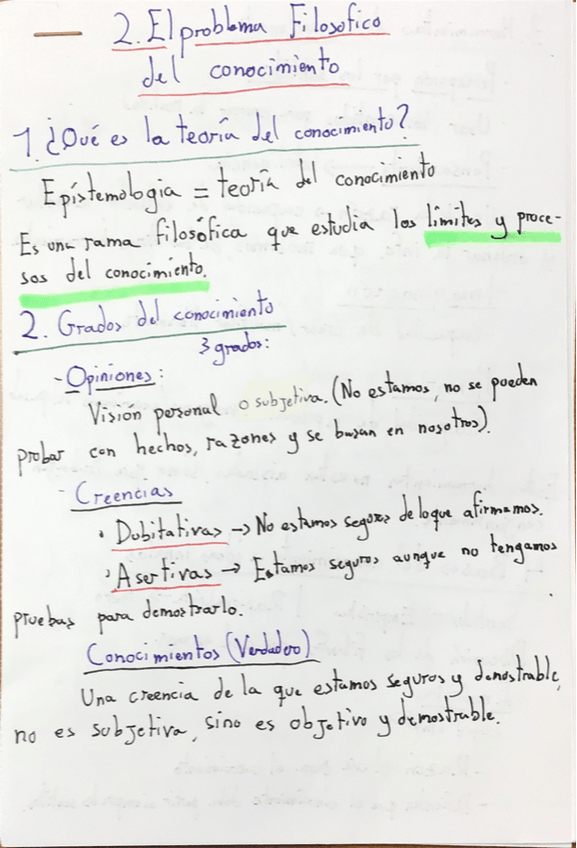 2. El problema Filosófico
del conocimiento
1. ¿Qué es la teoría del conocimiento?
Epístemologia = teoría del conocimiento
Es una rama filosófica que estudia los límites y proce-
sos del conocimiento.
2. Grados del conocimiento
3 grados:
- Opiniones:
Visión personal o subjetiva. (No estamos, no se pueden
probar con hechos, razones y se basan en nosotros).
- Creencias
• Dubitativas → No estamos seguros de lo que afirmamos.
• Asertivas → Estamos seguros aunque no tengamos
pruebas para demostrarlo.
Conocimientos (Verdadero)
Una creencia de la que estamos seguros y demostrable,
no es subjetiva, sino es objetivo y demostrable.